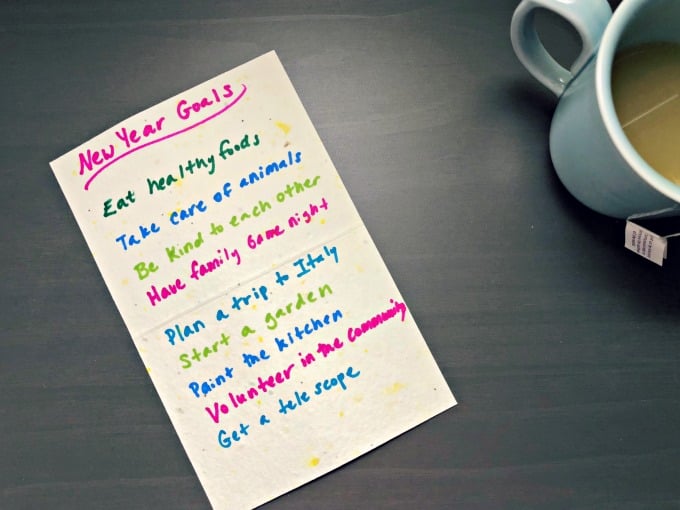 New Year Goals
Eat healthy foods
Take care of animals
Be kind to each other
Have family Game night
Plan a trip to Italy
Start a garden
Paint the kitchen
Volunteer in the community
Get a telescope